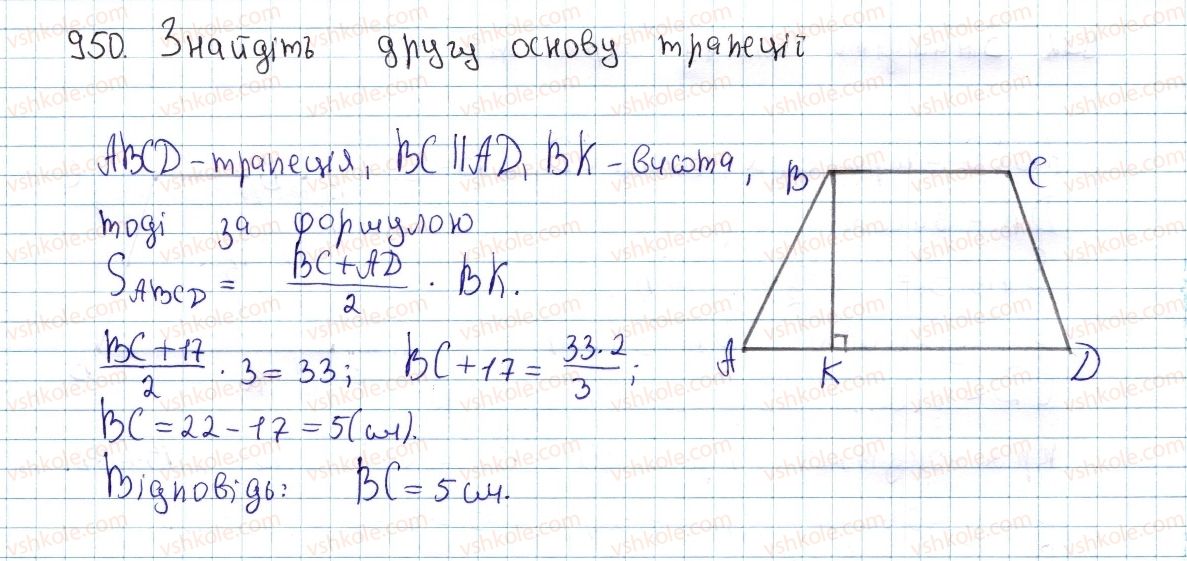 950. Знайдіть другу основу трапеції
ABCD - трапеція, BC || AD, BK - висота,
тоді за формулою
S_ABCD = (BC + AD)/2 · BK.
(BC + 17)/2 · 3 = 33; BC + 17 = (33 · 2)/3;
BC = 22 - 17 = 5 (см).
Відповідь: BC = 5 см.
B C
A K D
vshkole.com